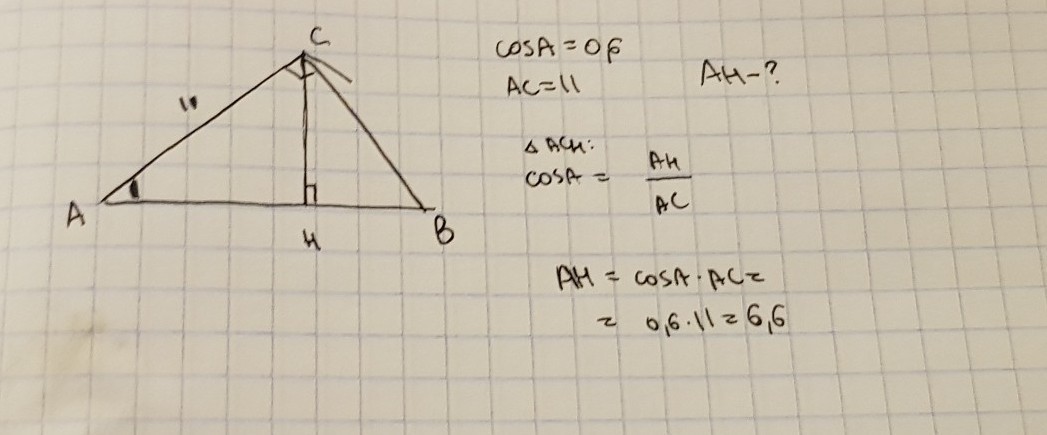 C
11
A
H
B
cosA = 0,6
AC = 11
AH - ?
△ ACH:
cosA = AH / AC
AH = cosA · AC =
= 0,6 · 11 = 6,6